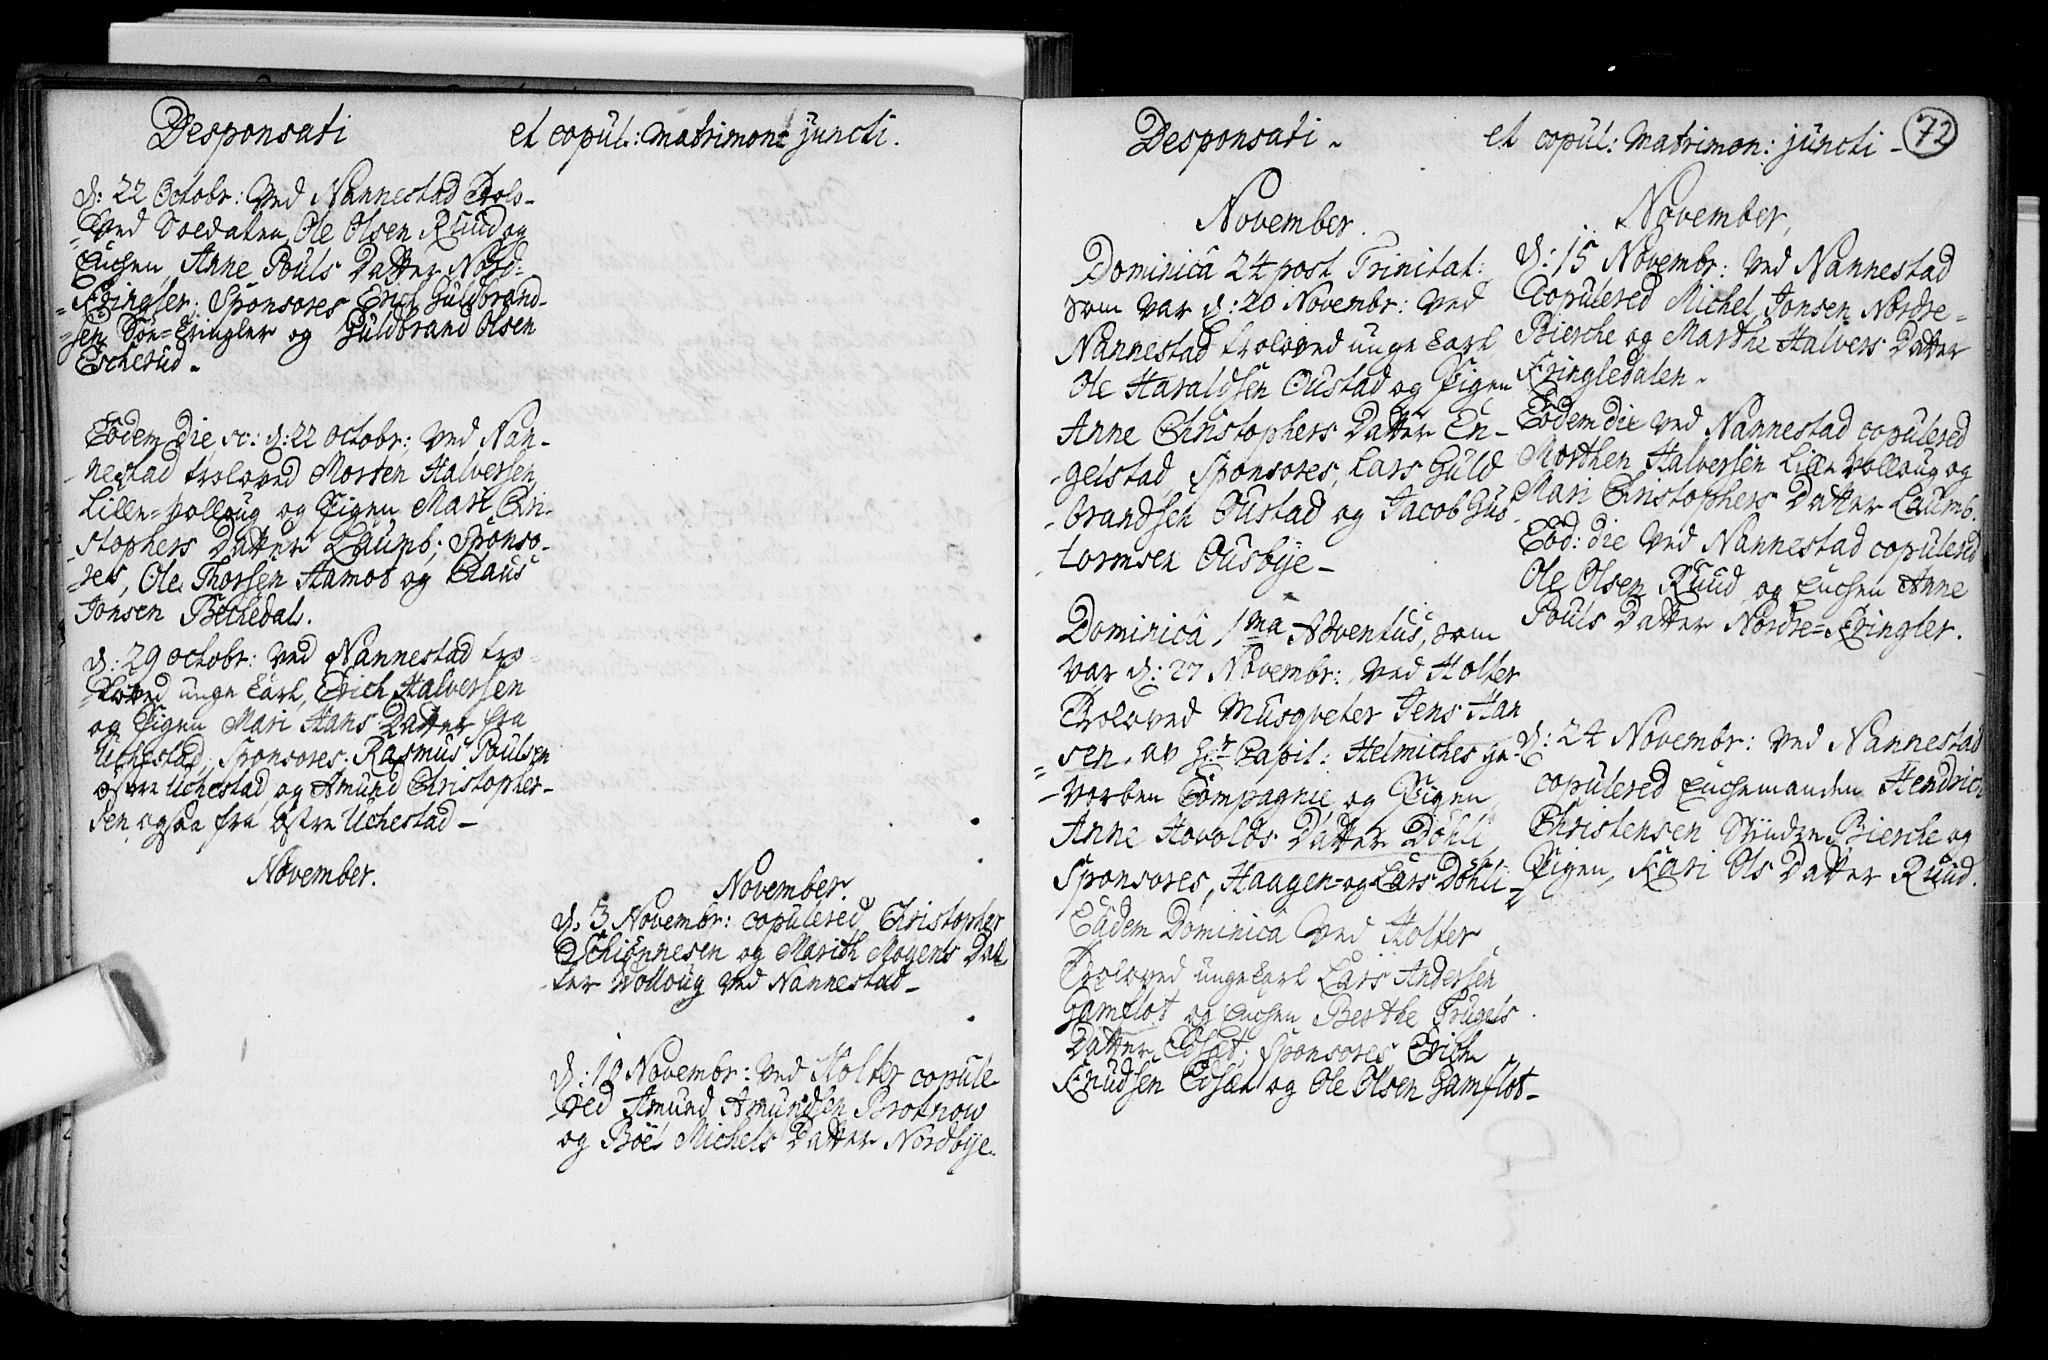 Desponsati
et copul: matrimon: juncti.
d: 22 Octobr: Ved Nannestad Trolo-
=ved Soldaten, Ole Olsen Ruud og
Enchen, Anne Pouls Datter Nord=
=Kringler; Sponsores Erich Guldbrand-
=sen Søe=Kringler og Guldbrand Olsen
Escherud.
Eodem Die, sc: d: 22 octobr: Ved Nan-
-nestad troloved Morten Halversen
Lille=Volloug og Pigen Mari Chri-
-stophers Datter Laumb; Sponso-
-res, Ole Thorsen Hamos og Claus
Jonsen Bechedal.
d: 29 octobr: Ved Nannestad tro-
-loved unge Karl, Erich Halversen
og Pigen Mari Hans Datter fra
Uchestad, Sponsores. Rasmus Poulsen
østre Uchestad og Amund Christopher-
sen ogsaa fra østre Uchestad-
November.
November.
d. 3 Novembr: copulered Christopher
Schiønnesen og Marith Mogens Dat-
-ter Volloug Ved Nannestad-
d: 10 Novembr: Ved Holter copule-
-red Amund Amundsen Brotnow
og Böel Michels Datter Nordbye.
Desponsati-
et copul: matrimon: juncti-
72
November.
Dominica 24 post Trinitat:
som var d: 20 Novembr: Ved
Nannestad troloved unge Karl
Ole Haraldsen Oustad og Pigen
Anne Christophers Datter En-
-gelstad, Sponsores, Lars Guld
-brandsen Oustad og Jacob Gut-
-tormsen Ousbye-
Dominica 1ma Adventus, som
var d: 27 Novembr: Ved Holter
Troloved Musqveter Jens Han
=sen, av Hr Capit: Helmiches ge-
-vorben Compagnie og Pigen
Anne Hovolds Datter Döhli
Sponsores, Haagen= og Lars Döhli-
Eadem Dominica Ved Holter
Troloved unge Karl Lars Andersen
Gamflot og Enchen Berthe Trugels
Datter Edsæt; Sponsores Erich
Knudsen Edsæt og Ole Olsen Gamflot-
November,
d: 15 Novembr: Ved Nannestad
Copulered Michel Jonsen Nordre-
Bierche og Marthe Halvers Datter
Kringledalen-
Eodem die Ved Nannestad copulered
Morthen Halversen Lille Volloug og
Mari Christophers Datter Laumb.
Eod: die Ved Nannestad copulered
Ole Olsen Ruud og Enchen Anne
Pouls Datter Nordre=Kringler.
d: 24 Novembr: Ved Nannestad
copulered Enchemanden Hendrich
Christensen Bierche og
Pigen, Kari Ols Datter Ruud.